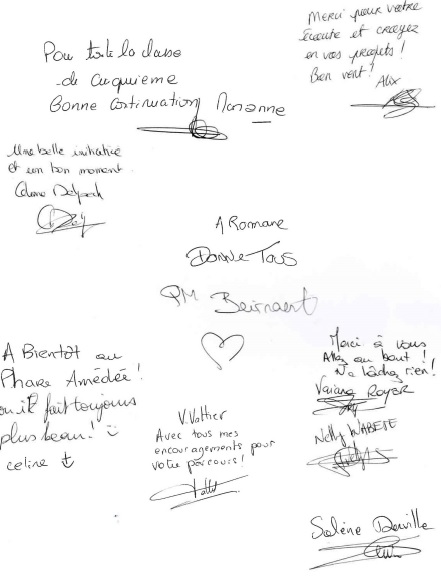 Merci pour votre
écoute et croyez
en vos projets !
Bon vent !
Alix
Pour toute la classe
de cinquieme
Bonne continuation Marianne
Une belle initiative
et un bon moment
A Romane
Donne Tous
PM Beirnaert
A Bientôt au
Phare Amédée !
où il fait toujours
plus beau !
celine
V. Vattier
Avec tous mes
encouragements pour
votre parcours !
Merci à vous
Allez au bout !
Ne lâchez rien !
Vaiana ROYER
Nelly WABETE
Solène Derville